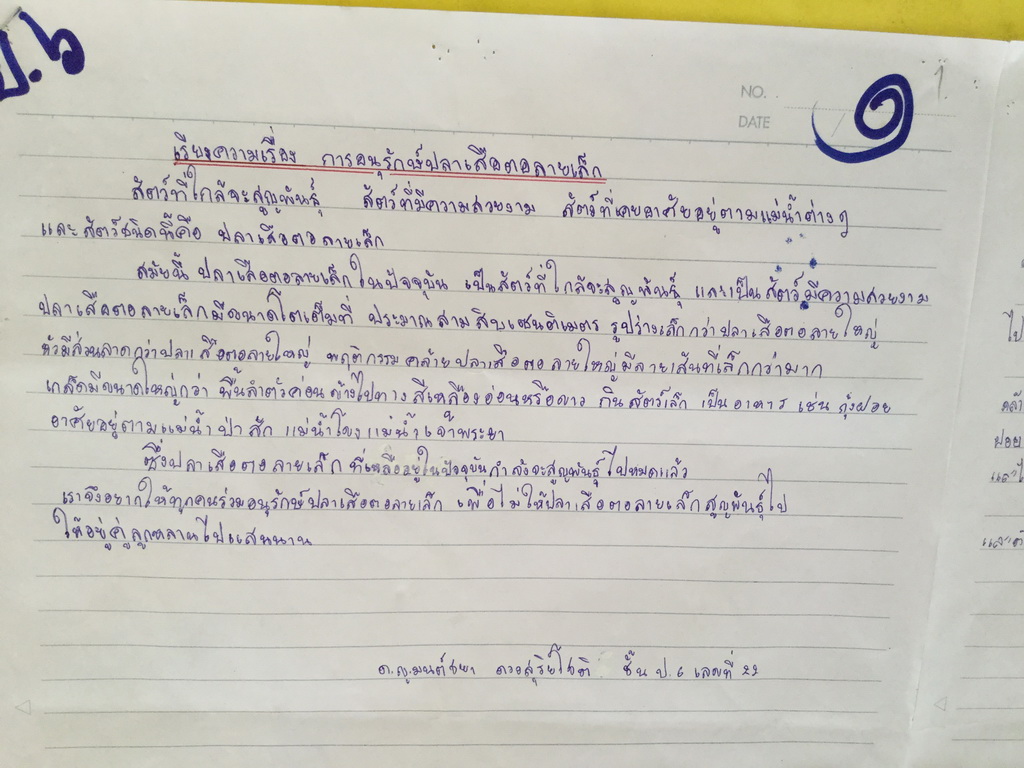 ป.๖
NO.
DATE
๑
1
เรียงความเรื่อง การอนุรักษ์ปลาเสือตอลายเล็ก
สัตว์ที่ใกล้จะสูญพันธุ์ สัตว์ที่มีความสวยงาม สัตว์ที่เคยอาศัยอยู่ตามแม่น้ำต่างๆ
และสัตว์ชนิดนี้คือ ปลาเสือตอลายเล็ก
สมัยนี้ ปลาเสือตอลายเล็กในปัจจุบัน เป็นสัตว์ที่ใกล้จะสูญพันธุ์ และเป็นสัตว์มีความสวยงาม
ปลาเสือตอลายเล็กมีขนาดโตเต็มที่ ประมาณสามสิบเซนติเมตร รูปร่างเล็กกว่าปลาเสือตอลายใหญ่
หัวมีส่วนลาดกว่าปลาเสือตอลายใหญ่ พฤติกรรมคล้ายปลาเสือตอลายใหญ่มีลายเส้นที่เล็กกว่ามาก
เกล็ดมีขนาดใหญ่กว่า พื้นลำตัวค่อนข้างไปทาง สีเหลืองอ่อนหรือขาว กินสัตว์เล็ก เป็นอาหาร เช่น กุ้งฝอย
อาศัยอยู่ตามแม่น้ำป่าสัก แม่น้ำโขง แม่น้ำเจ้าพระยา
ซึ่งปลาเสือตอลายเล็กที่เหลืออยู่ในปัจจุบันกำลังจะสูญพันธุ์ไปหมดแล้ว
เราจึงอยากให้ทุกคนร่วมอนุรักษ์ปลาเสือตอลายเล็ก เพื่อไม่ให้ปลาเสือตอลายเล็กสูญพันธุ์ไป
ให้อยู่คู่ลูกหลานไปแสนนาน
ด.ญ.มนต์ชยา ดวงสุริยโชติ ชั้น ป.๖ เลขที่ ๒๒
ไป
คล้า
ฝอย
และไ